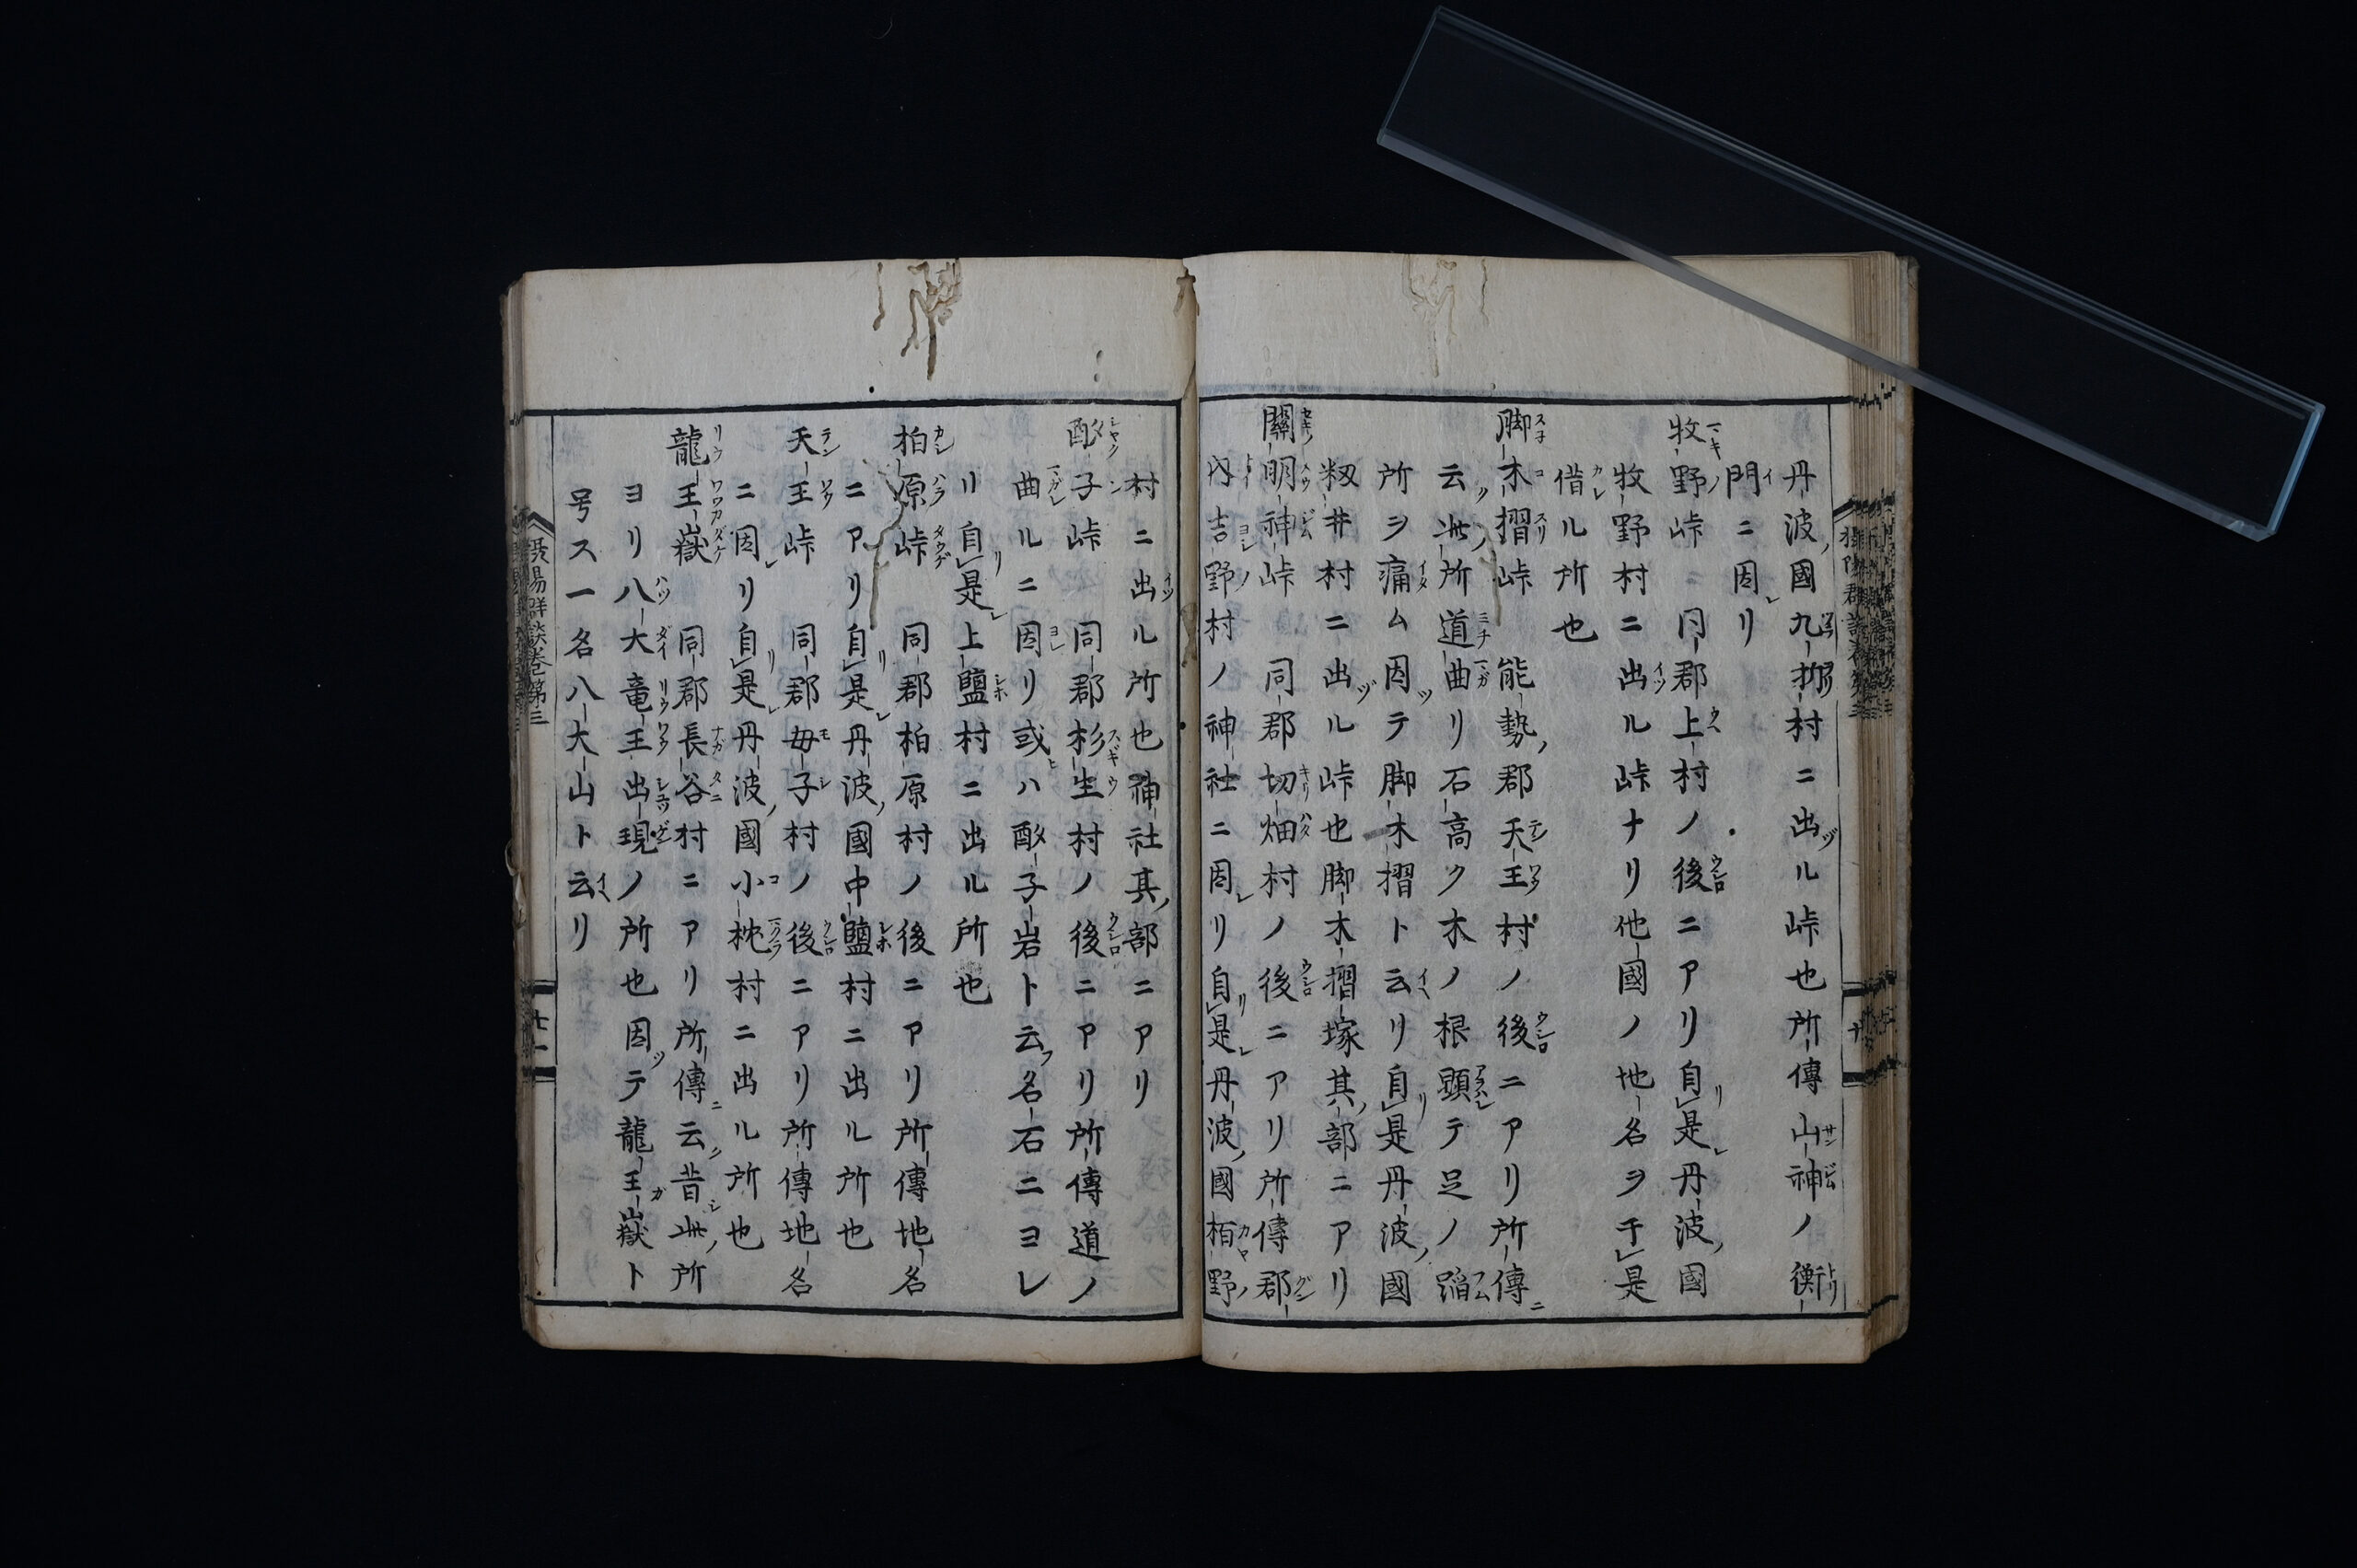 丹波ノ國九拗村ニ出ヅル峠也所傳山神ノ衡
門ニ因レリ
牧野峠 同郡上村ノ後ニアリ自リ是レ丹波ノ國
牧野村ニ出ル峠ナリ他國ノ地名ヲ于是
借ル所也
脚木摺峠 能勢ノ郡天王村ノ後ニアリ所傳ニ
云ク此ノ所道曲リ石高ク木ノ根顕テ足ノ蹈
所ヲ痛ム因ツテ脚木摺ト云リ自リ是丹波ノ國
籾井村ニ出ヅル峠也脚木摺塚其ノ部ニアリ
關明神峠 同郡切畑村ノ後ニアリ所傳郡
内吉野村ノ神社ニ因レリ自リ是レ丹波ノ國栢野ノ
村ニ出ル所也神社其ノ部ニアリ
酌子峠 同郡杉生村ノ後ニアリ所傳道ノ
曲ルニ因リ或ハ酌子岩ト云フ名石ニヨレ
リ自リ是レ上鹽村ニ出ル所也
柏原峠 同郡柏原村ノ後ニアリ所傳地名
ニアリ自リ是レ丹波ノ國中鹽村ニ出ル所也
天王峠 同郡毋子村ノ後ニアリ所傳地名
ニ因レリ自リ是レ丹波ノ國小枕村ニ出ル所也
龍王嶽 同郡長谷村ニアリ所傳ニ云ク昔シ此ノ所
ヨリ八大竜王出現ノ所也因ツテ龍王ガ嶽ト
号ス一名八大山ト云リ
摂陽群談巻第三
廿一